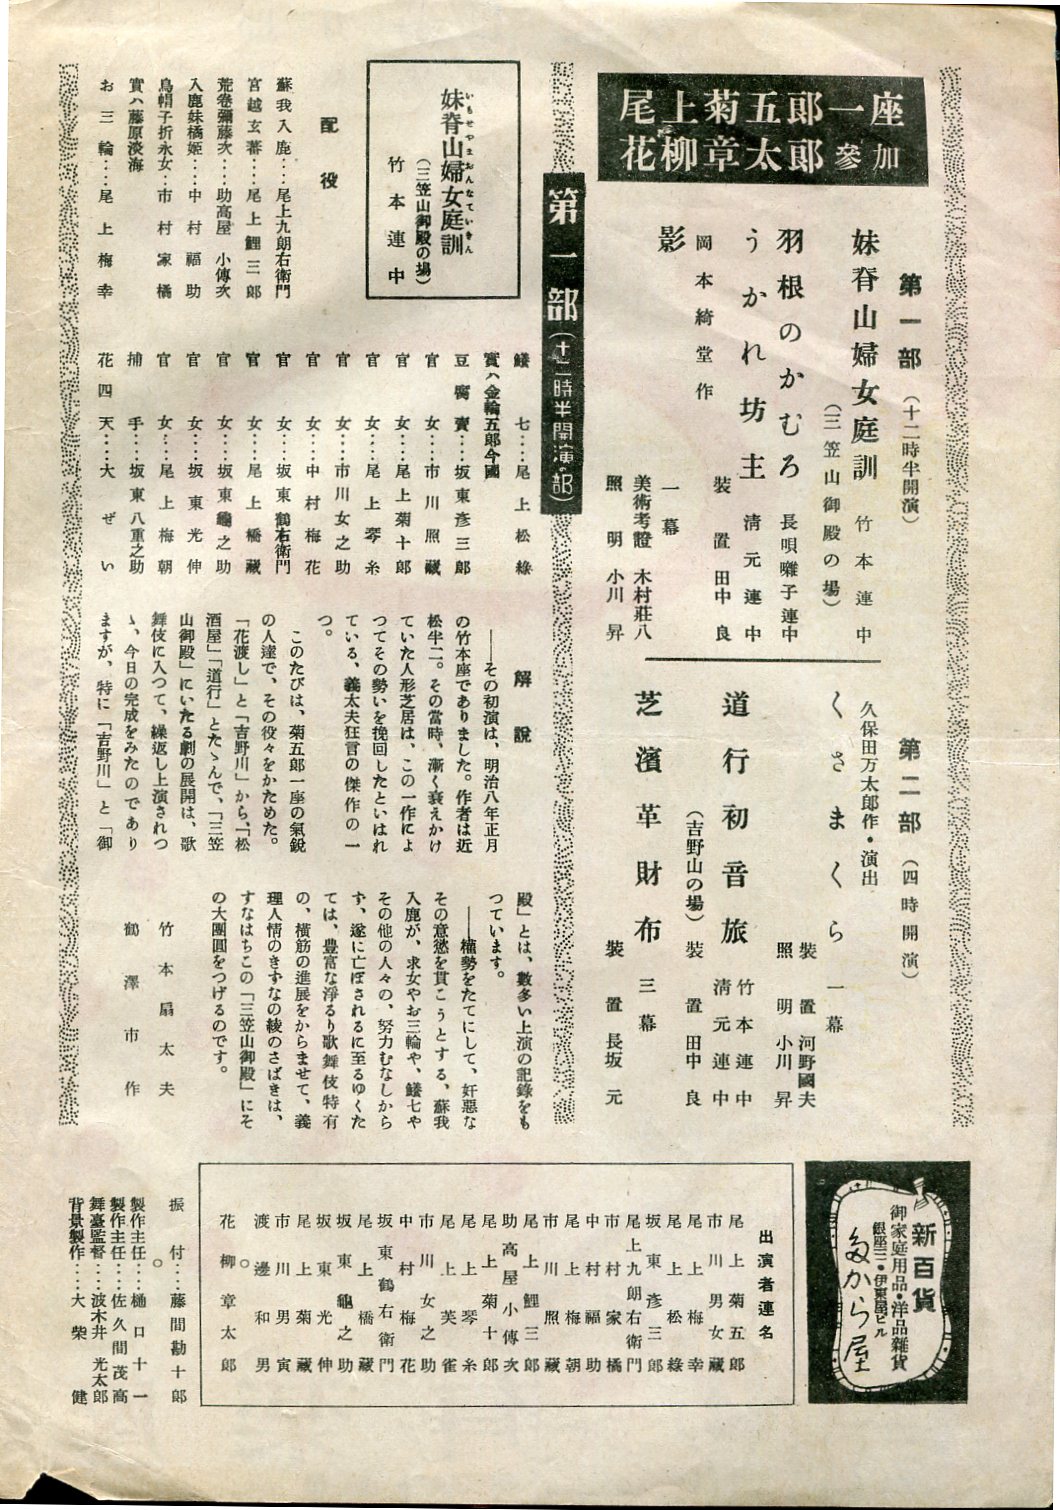 尾上菊五郎一座
花柳章太郎參加
第一部（十二時半開演）
妹脊山婦女庭訓　竹本連中
（三笠山御殿の場）
羽根のかむろ　長唄囃子連中
うかれ坊主　淸元連中
裝置　田中良
岡本綺堂作
影
一幕
美術考證　木村莊八
照明　小川昇
第二部（四時開演）
久保田万太郎作・演出
くさまくら　一幕
裝置　河野國夫
照明　小川昇
道行初音旅　竹本連中
淸元連中
（吉野山の場）　裝置　田中良
芝濱革財布　三幕
裝置　長坂元
第一部（十二時半開演の部）
妹脊山婦女庭訓
いもせやまおんなていきん
（三笠山御殿の場）
竹本連中
配役
蘇我入鹿‥‥尾上九朗右衞門
宮越玄蕃‥‥尾上鯉三郎
荒卷彌藤次‥‥助高屋小傳次
入鹿妹橘姬‥‥中村福助
烏帽子折永女‥市村家橘
實ハ藤原淡海
お三輪‥‥尾上梅幸
鱶七‥‥尾上松綠
實ハ金輪五郎今國
豆腐賣‥‥坂東彥三郎
官女‥‥市川照藏
官女‥‥尾上菊十郎
官女‥‥尾上琴糸
官女‥‥市川女之助
官女‥‥中村梅花
官女‥‥坂東鶴右衞門
官女‥‥尾上橋藏
官女‥‥坂東龜之助
官女‥‥坂東光伸
官女‥‥尾上梅朝
捕手‥‥坂東八重之助
花四天‥‥大ぜい
解說
――その初演は、明治八年正月
の竹本座でありました。作者は近
松半二。その當時、漸く衰えかけ
ていた人形芝居は、この一作によ
つてその勢いを挽回したといはれ
ている、義太夫狂言の傑作の一
つ。
このたびは、菊五郎一座の氣銳
の人達で、その役々をかためた。
「花渡し」と「吉野川」から、「松
酒屋」「道行」とたゝんで、「三笠
山御殿」にいたる劇の展開は、歌
舞伎に入つて、繰返し上演されつ
ゝ、今日の完成をみたのであり
ますが、特に「吉野川」と「御
殿」とは、數多い上演の記錄をも
つています。
――權勢をたてにして、奸惡な
その意慾を貫こうとする、蘇我
入鹿が、求女やお三輪や、鱶七や
その他の人々の、努力むなしから
ず、遂に亡ぼされるに至るゆくた
ては、豊富な淨るり歌舞伎特有
の、橫筋の進展をからませて、義
理人情のきずなの綾のさばきは、
すなはちこの「三笠山御殿」にそ
の大團圓をつげるのです。
竹本扇太夫
鶴澤市作
新百貨
御家庭用品・洋品雜貨
銀座三・伊東屋ビル
たから屋
出演者連名
尾上菊五郎
市川男女藏
尾上梅幸
尾上松綠
坂東彥三郎
尾上九朗右衞門
市村家橘
中村福助
尾上梅朝
市川照藏
尾上鯉三郎
助高屋小傳次
尾上菊十郎
尾上琴糸
尾上芙雀
市川女之助
中村梅花
坂東鶴右衞門
尾上橋藏
坂東龜之助
坂東光伸
尾上菊藏
市川男寅
渡邊和男
○
花柳章太郎
振付‥‥藤間勘十郎
○
製作主任‥‥樋口十一
製作主任‥‥佐久間茂高
舞臺監督‥‥波木井光太郎
背景製作‥‥大柴健